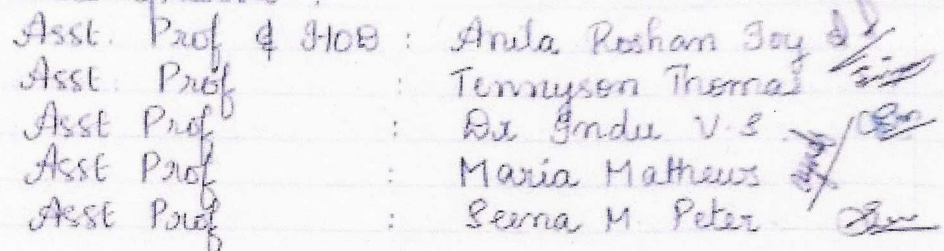 Asst. Prof & HOD : Anila Roshan Joy
Asst. Prof : Tennyson Thomas
Asst Prof : Dr Indu V.S
Asst Prof : Maria Mathews
Asst Prof : Seena M. Peter